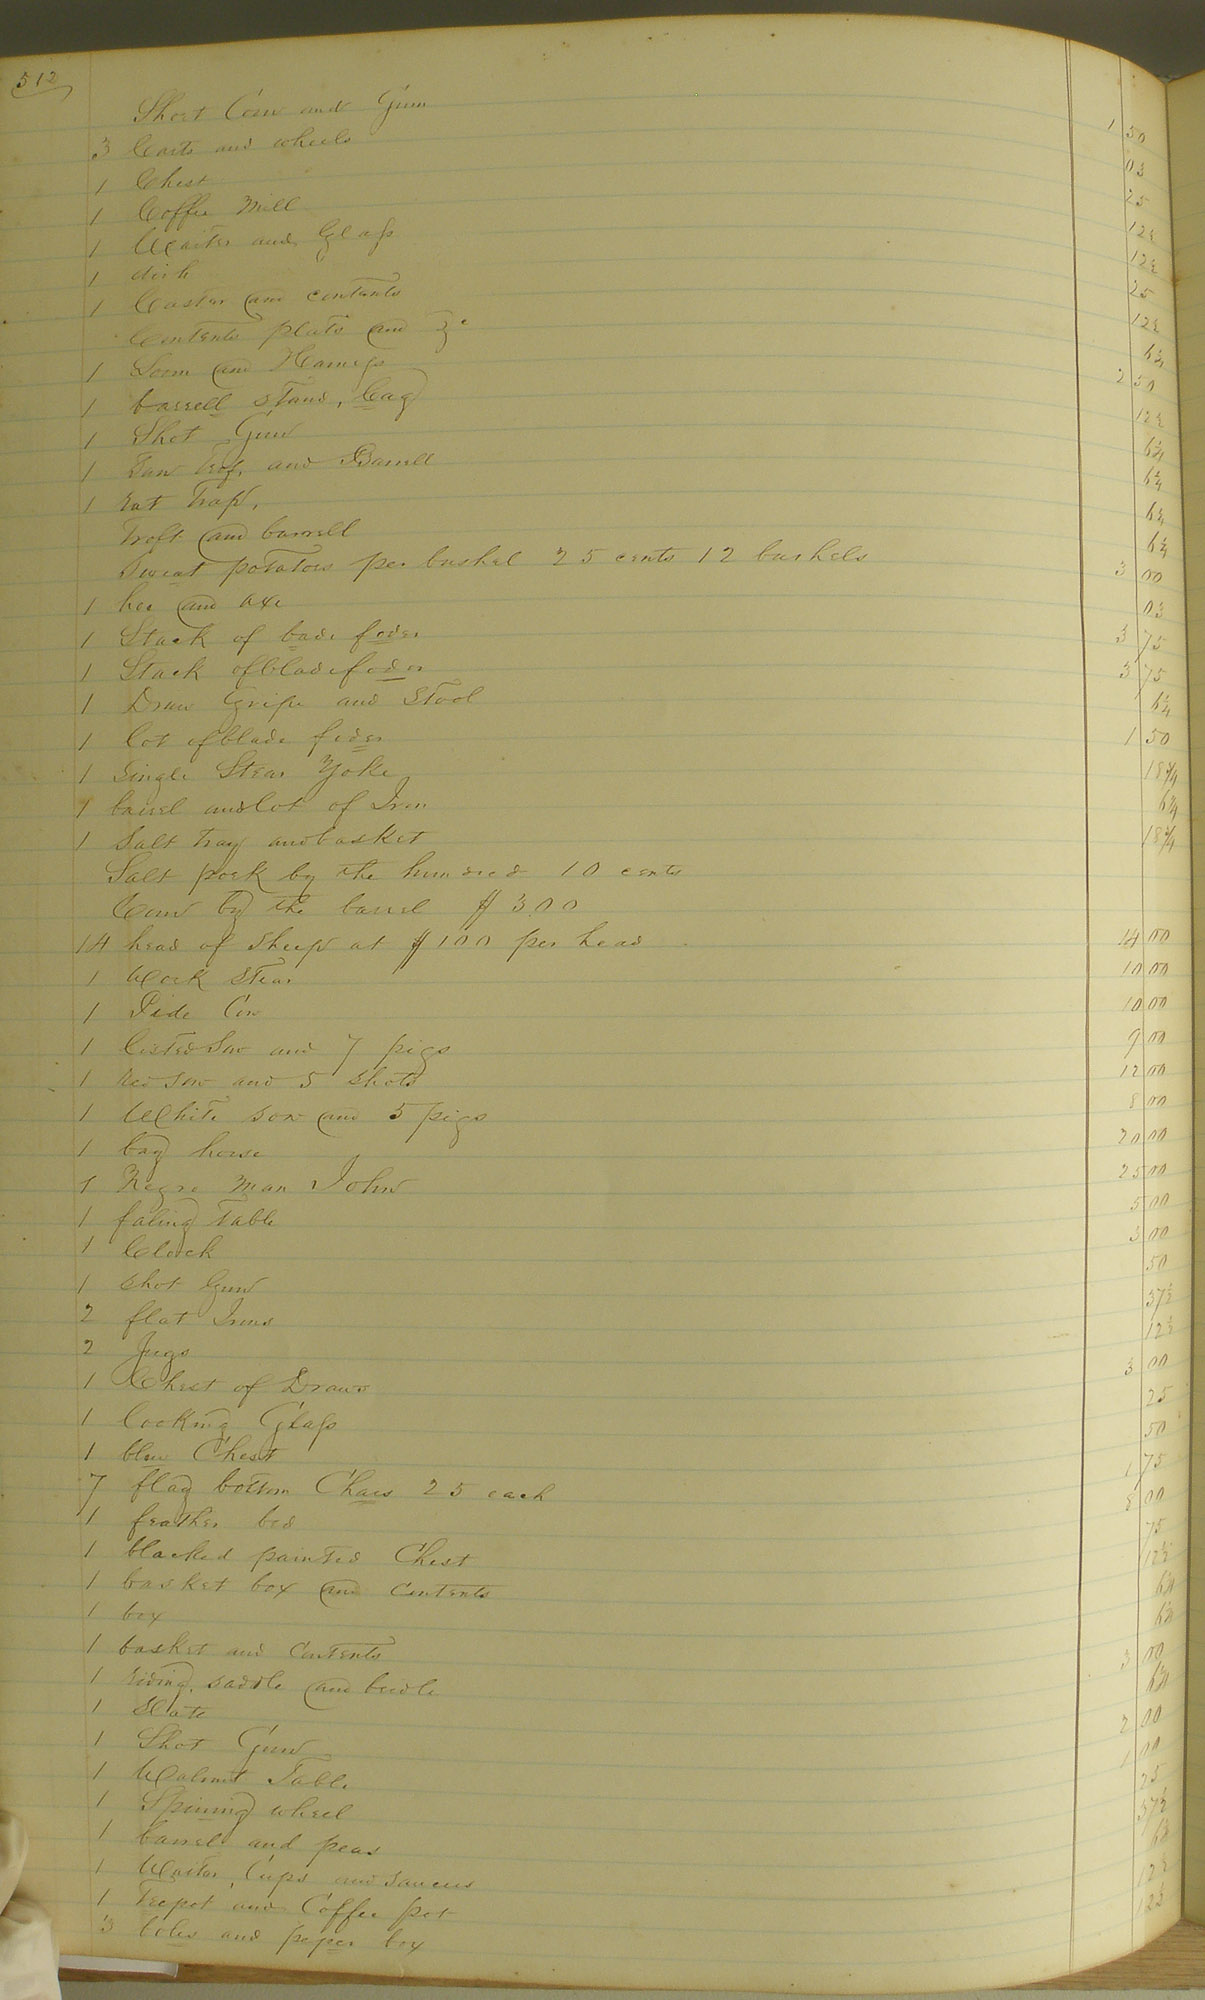 512
Short Corn and Gum 1 50
3 Carts and wheels 03
1 Chest 25
1 Coffee Mill 12½
1 Waiter and Glass 12½
1 dish 25
1 Castor and contents 12½
Contents plats and &c 6¼
1 Loom and Harness 2 50
1 barrell stand, Cag 12½
1 Shot Gun 6¼
1 and Barrell 6¼
1 Rat Trap, 6¼
Troft and barrell 6¼
Sweat potatoes per bushel 25 cents 12 bushels 3 00
1 hoe and axe 03
1 Stack of bade foder 3 75
1 Stack of blade foder 3 75
1 Draw Gripe and Stool 6¼
1 lot of blade foder 1 50
1 Single Stear Yoke 18¾
1 barrel and lot of Iron 6¼
1 Salt Tray and basket 18¾
Salt pork by the hundred 10 cents
Corn by the barrel $ 3.00
14 head of Sheep at $ 100 per head 14 00
1 Work Stear 10 00
1 Pide Cow 10 00
1 listed Sow and 7 pigs 9 00
1 Red Sow and 5 shots 12 00
1 White sow and 5 pigs 8 00
1 bay horse 20 00
1 Negro Man John 25 00
1 faling Table 5 00
1 Clock 3 00
1 shot Gun 50
2 flat Irons 37½
2 Jugs 12½
1 Chest of Draws 3 00
1 looking Glass 25
1 blue Chest 50
7 flag bottom Chars 25 each 1 75
1 feather bed 8 00
1 blacked painted Chest 75
1 basket box and contents 12½
1 box 6¼
1 basket and Contents 6¼
1 riding saddle and bridle 3 00
1 Slate 6¼
1 Shot Gun 2 00
1 Walnut Table 1 00
1 Spinning wheel 25
1 barrel and peas 37½
1 Waiter, Cups and saucers 6¼
1 Teepot and Coffee pot 12½
3 boles and peper box 12½